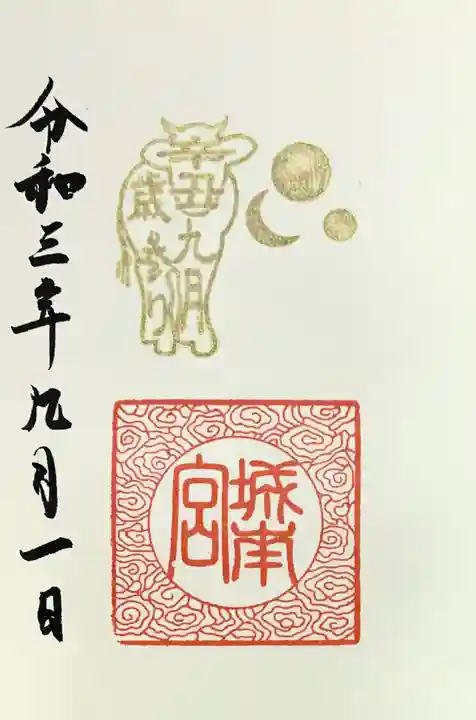 令和三年九月一日
辛丑
九月
歳
まいり
城南
宮